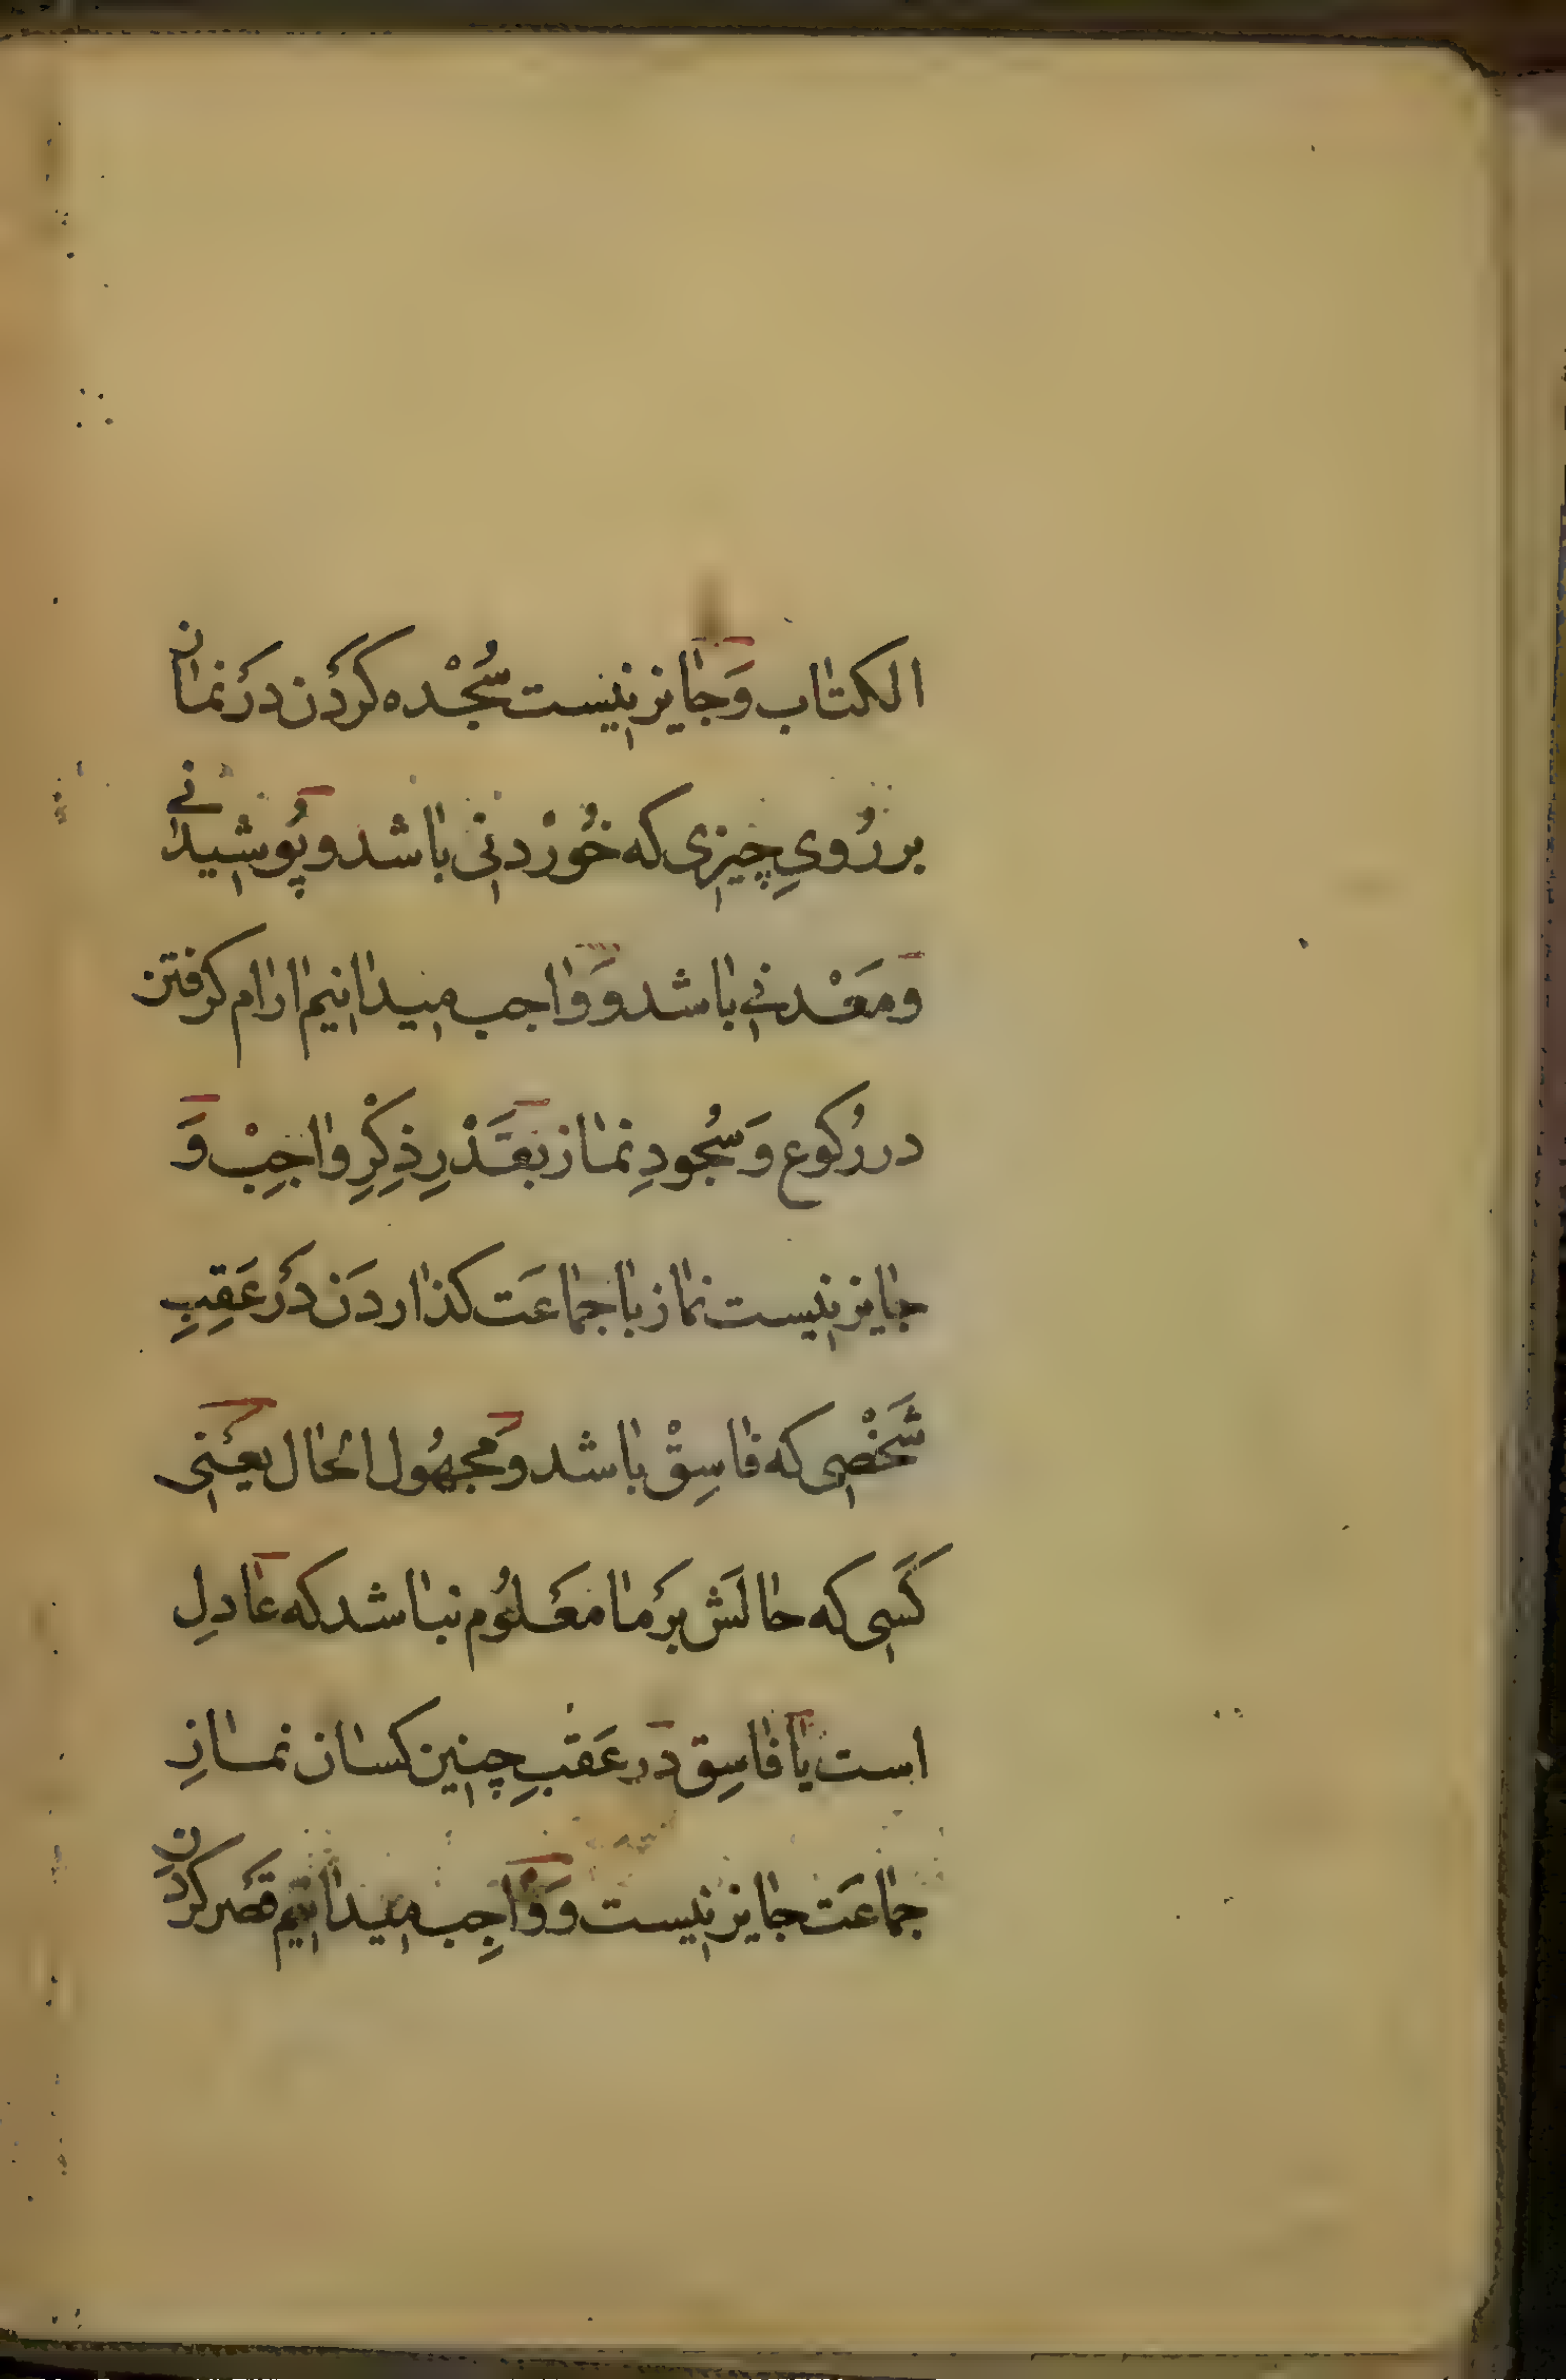 الكتاب وَجایز نیست سُجْده كَردَن دَر نماز
بر رُویِ چیزی که خُورْدنی باشد و پُوشیدنے
و مَعْدنے باشد وَ واجب میدانیم ارام کرفتن
در رُکوع وَ سُجودِ نماز بقَدْرِ ذِکْرِ واجِبْ وَ
جایز نیست نماز با جماعَت کذاردَن دَر عَقِبِ
شَخْصی که فاسِقْ باشد وَ مجهُول الحال یَعْنی
کَسی که حالَش بَر ما مَعْلُوم نباشد که عادِلِ
است یا فاسِق دَر عَقبِ چنین کسان نمازِ
جماعَت جایز نیست وَ وَاجِب میدانیم قَصر کردن